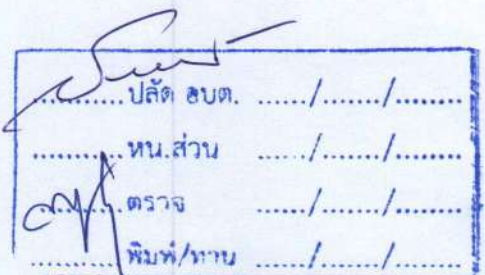 ..........ปลัด อบต. ....../......./........
..........หน.ส่วน ....../......./........
..........ตรวจ ....../......./........
..........พิมพ์/ทาน ....../......./........